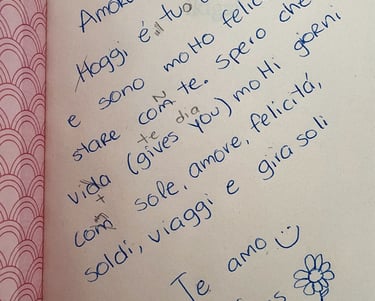 Amore
Hoggi é tuo
il
e sono molto felic
stare com te. Spero che
n te dia
vida (gives you) molti giorni
t
com sole, amore, felicitá,
n
soldi, viaggi e girasoli
Te amo